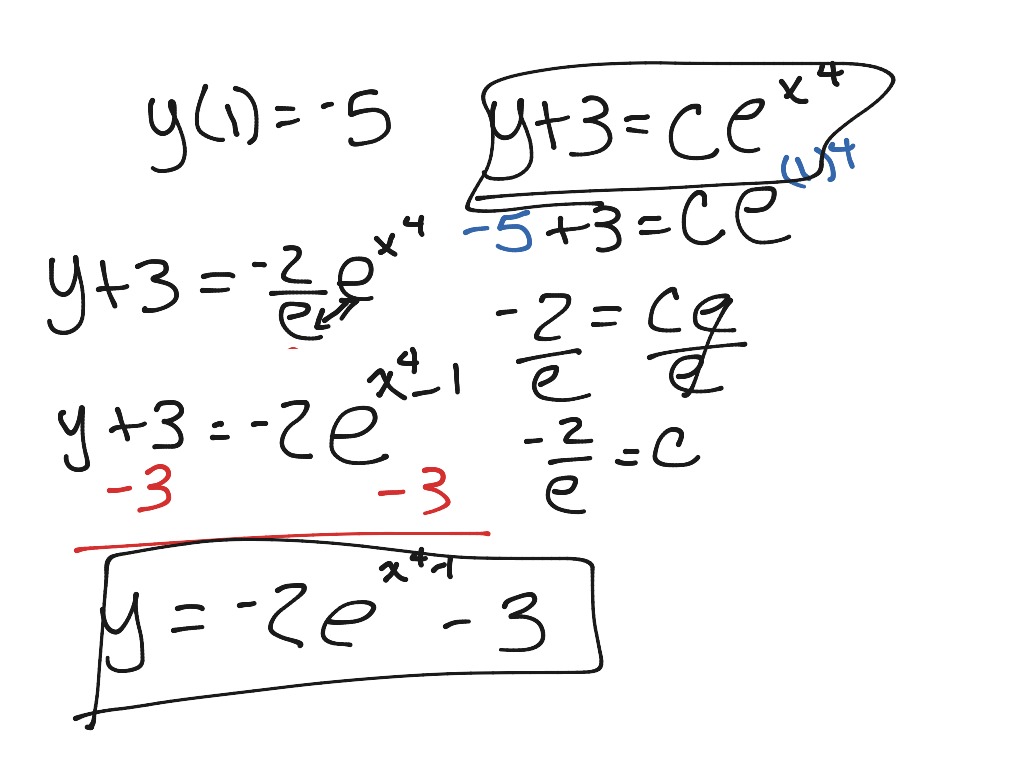 y(1) = -5
y+3 = Ce^{x^4}
-5+3 = Ce^{(1)^4}
\frac{-2}{e} = \frac{Ce}{e}
\frac{-2}{e} = C
y+3 = \frac{-2}{e} e^{x^4}
y+3 = -2e^{x^4-1}
-3 -3
y = -2e^{x^4-1} - 3